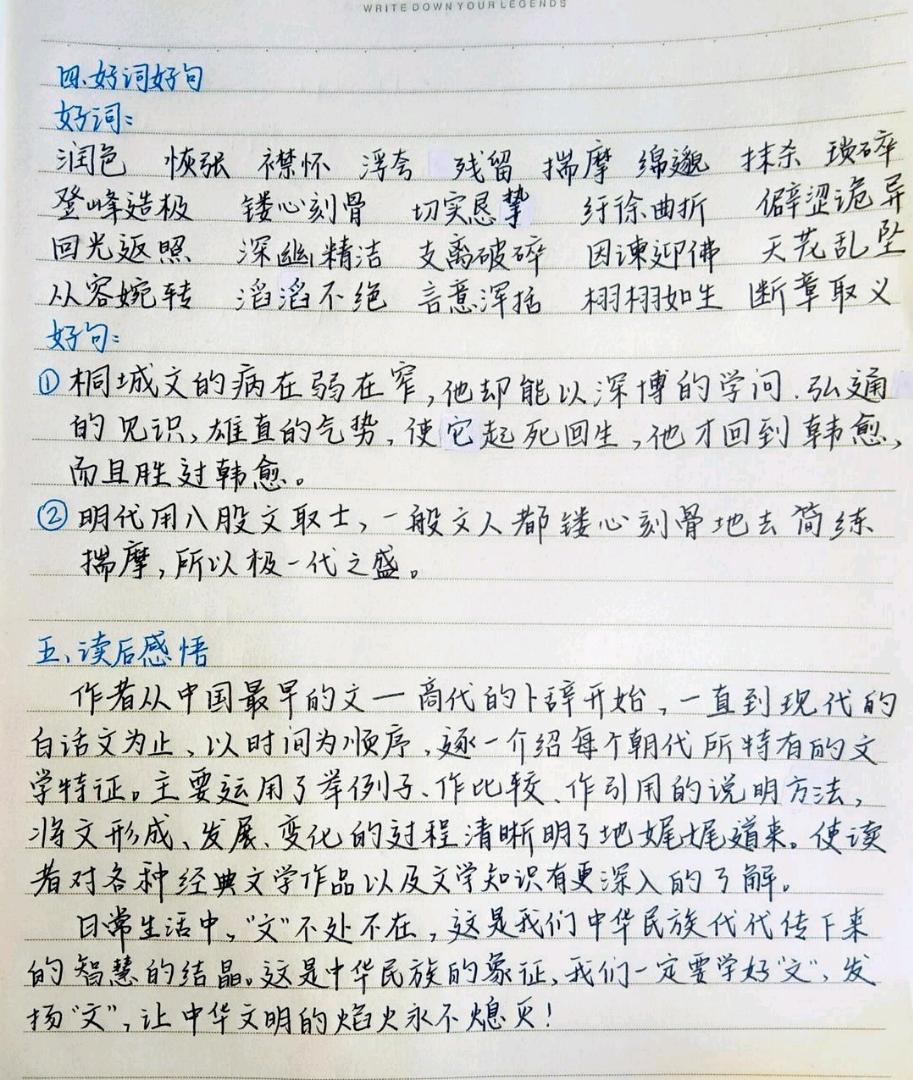 WRITE DOWN YOUR LEGENDS
四、好词好句
好词:
润色 恢张 襟怀 浮夸 残留 揣摩 绵邈 抹杀 琐碎
登峰造极 镂心刻骨 切实恳挚 纡徐曲折 僻涩诡异
回光返照 深幽精洁 支离破碎 因谏迎佛 天花乱坠
从容婉转 滔滔不绝 言意浑括 栩栩如生 断章取义
好句:
①桐城文的病在弱在窄,他却能以深博的学问、弘通
的见识,雄直的气势,使它起死回生,他才回到韩愈,
而且胜过韩愈。
②明代用八股文取士,一般文人都镂心刻骨地去简练
揣摩,所以极一代之盛。
五、读后感悟
作者从中国最早的文一商代的卜辞开始,一直到现代的
白话文为止,以时间为顺序,逐一介绍每个朝代所特有的文
学特证。主要运用了举例子、作比较、作引用的说明方法,
将文形成、发展、变化的过程清晰明了地娓娓道来。使读
者对各种经典文学作品以及文学知识有更深入的了解。
日常生活中,“文”不处不在,这是我们中华民族代代传下来
的智慧的结晶。这是中华民族的象证,我们一定要学好“文”,发
扬“文”,让中华文明的焰火永不熄灭!